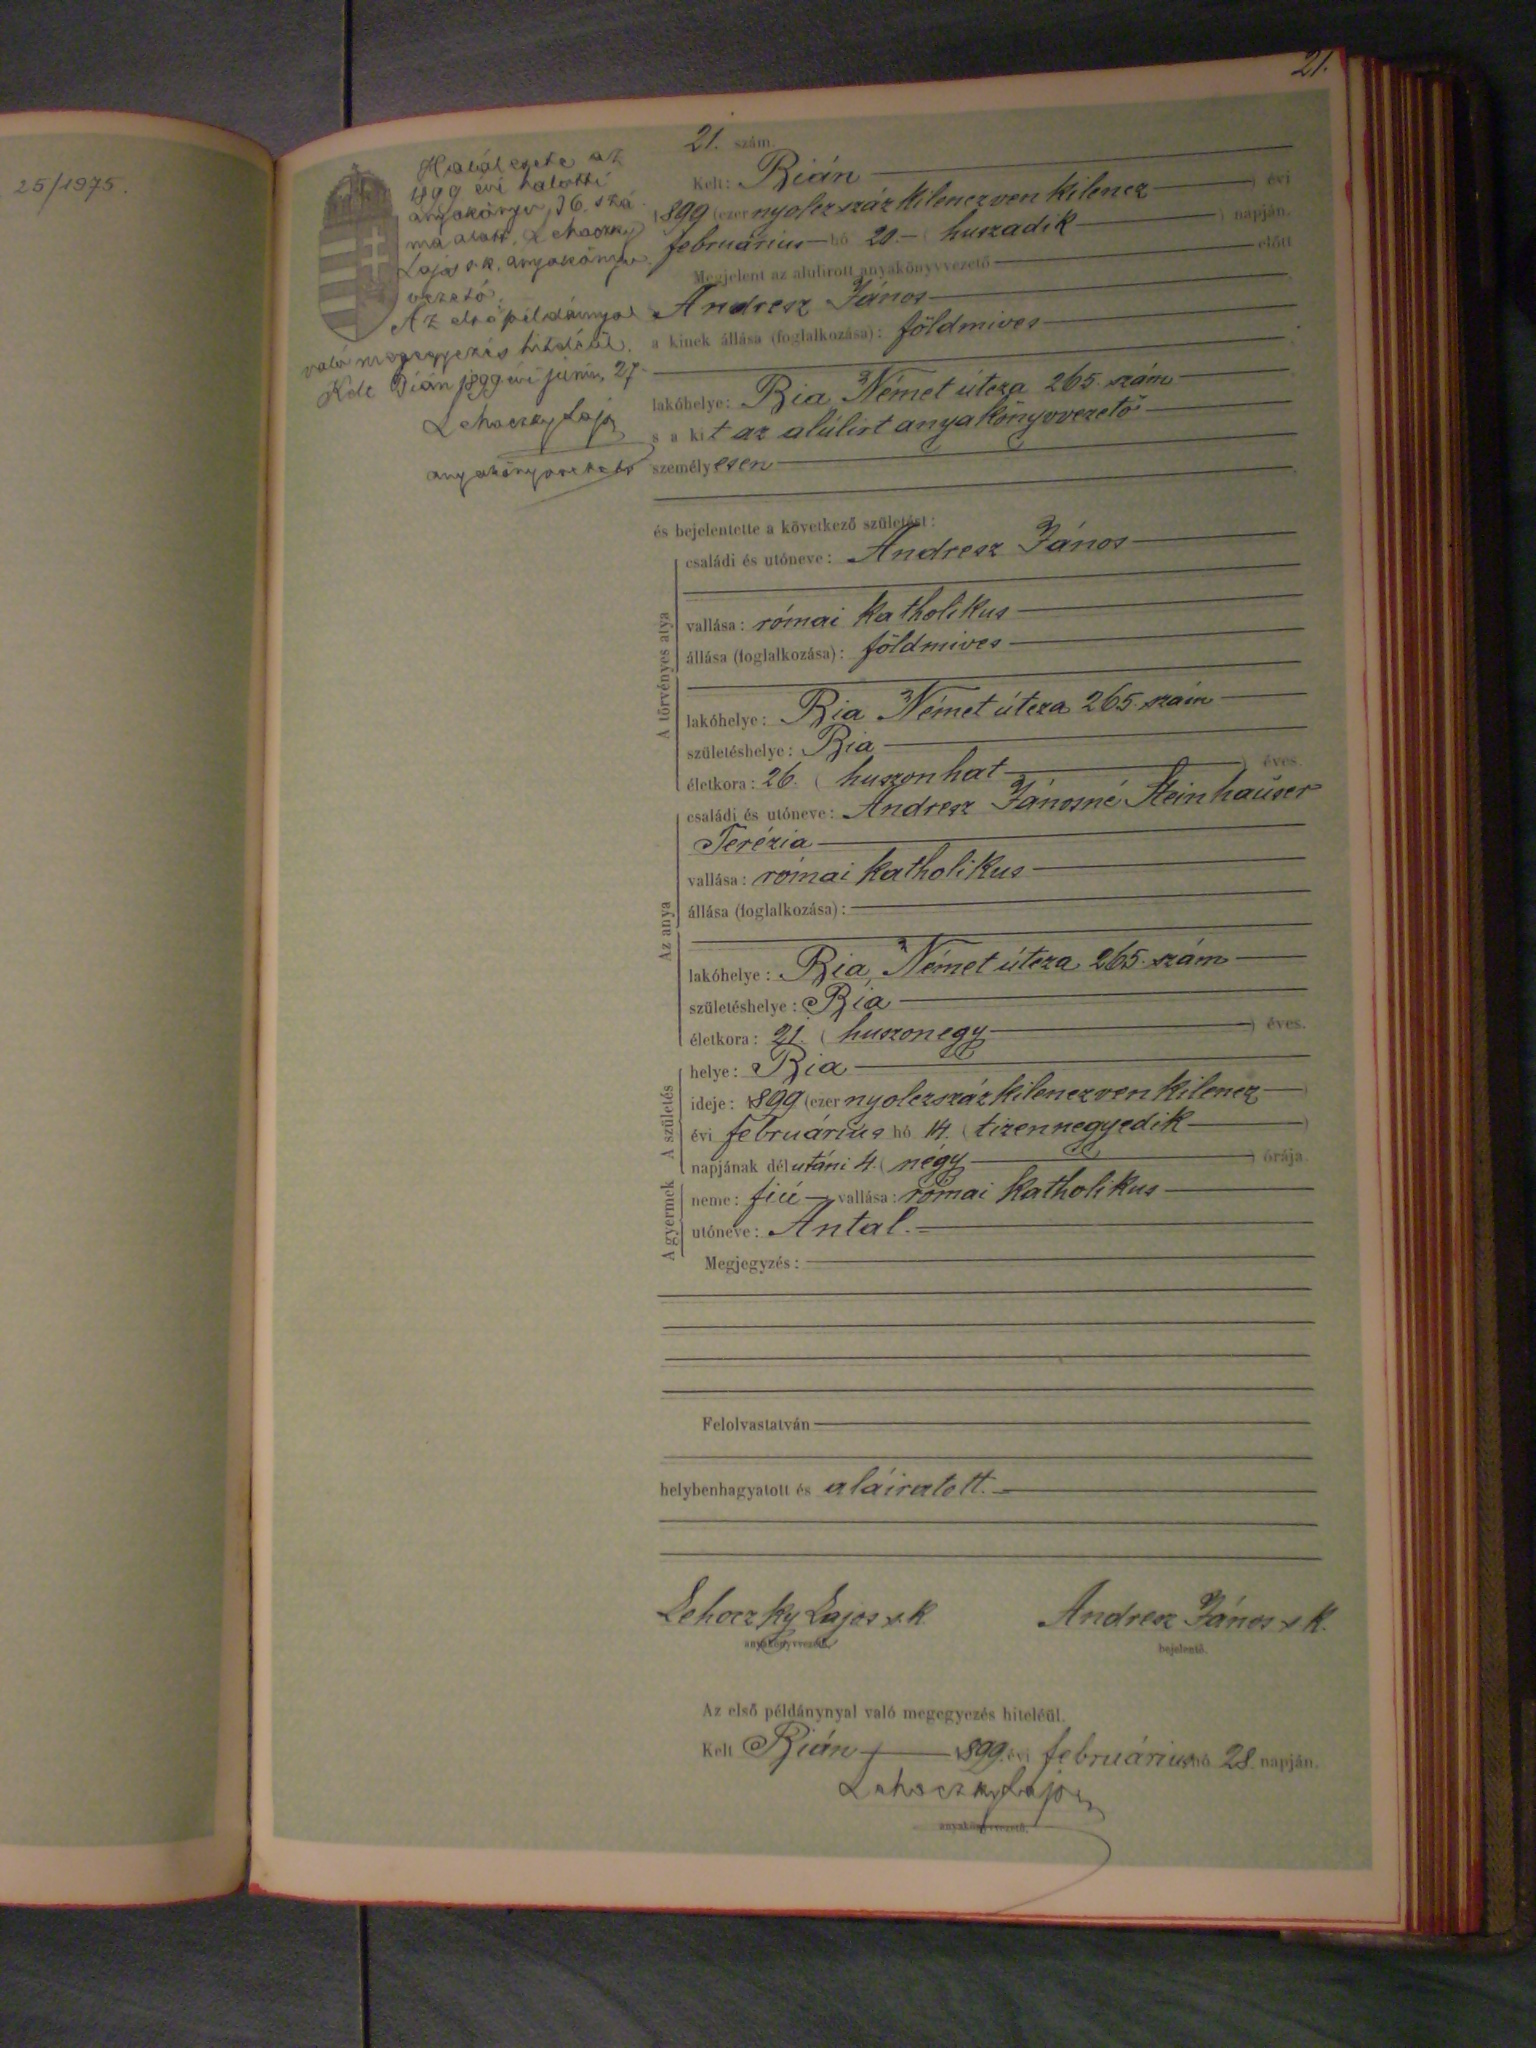 25/1975.
21.
Halálesete az
1899 évi halotti
anyakönyv, 76. szá
ma alatt. Lehoczky
Lajos s.k. anyakönyv
vezető.
Az első példánynyal
való megegyezés hiteléül.
Kelt Bián 1899 évi június 27
Lehoczky Lajos
anyakönyvvezető
21. szám
Kelt: Bián
1899 (ezer nyolczszáz kilenczven kilencz ) évi
februárius hó 20. ( huszadik ) napján.
Megjelent az alulirott anyakönyvvezető előtt
Andresz János
a kinek állása (foglalkozása): földmives
lakóhelye: Bia Német útcza 265. szám
s a kit az alúlirt anyakönyvvezető
személyesen
és bejelentette a következő születést:
A törvényes atya
családi és utóneve: Andresz János
vallása: római katholikus
állása (foglalkozása): földmives
lakóhelye: Bia Német útcza 265. szám
születéshelye: Bia
életkora: 26. ( huszonhat ) éves.
Az anya
családi és utóneve: Andresz Jánosné Steinhauser
Terézia
vallása: római katholikus
állása (foglalkozása):
lakóhelye: Bia, Német útcza 265. szám
születéshelye: Bia
életkora: 21. ( huszonegy ) éves.
A születés
helye: Bia
ideje: 1899 (ezer nyolczszáz kilenczven kilencz )
évi februárius hó 14. ( tizennegyedik )
napjának délutáni 4. ( négy ) órája.
A gyermek
neme: fiú vallása: római katholikus
utóneve: Antal.
Megjegyzés:
Felolvastatván
helybenhagyatott és aláiratott.
Lehoczky Lajos s.k. Andresz János s.k.
anyakönyvvezető. bejelentő.
Az első példánynyal való megegyezés hiteléül.
Kelt Bián 1899. évi februárius hó 28. napján.
Lehoczky Lajos
anyakönyvvezető.